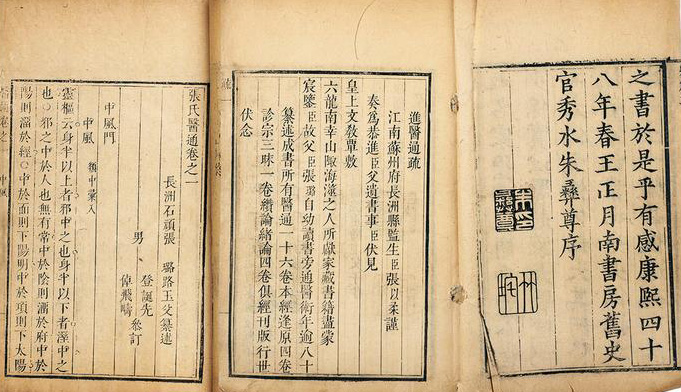 之書於是乎有感康熙四十
八年春王正月南書房舊史
官秀水朱彝尊序
進醫通疏
江南蘇州府長洲縣監生臣張以柔謹
奏為恭進臣父遺書事臣伏見
皇上文教覃敷
六龍南幸山陬海澨之人所獻家藏書籍盡蒙
宸鑒臣故父臣張璐自幼讀書旁通醫術年逾八十
纂述成書所有醫通一十六卷本經逢原四卷
診宗三昧一卷纘論緒論四卷俱經刊版行世
伏念
張氏醫通卷之一
長洲石頑張 璐路玉父纂述
男 登誕先
倬飛疇 叅訂
中風門
中風 類中
靈樞云身半以上者邪中之也身半以下者溼中之
也○邪之中於人也無有常中於陰則溜於府中於
陽則溜於經○中於面則下陽明中於項則下太陽